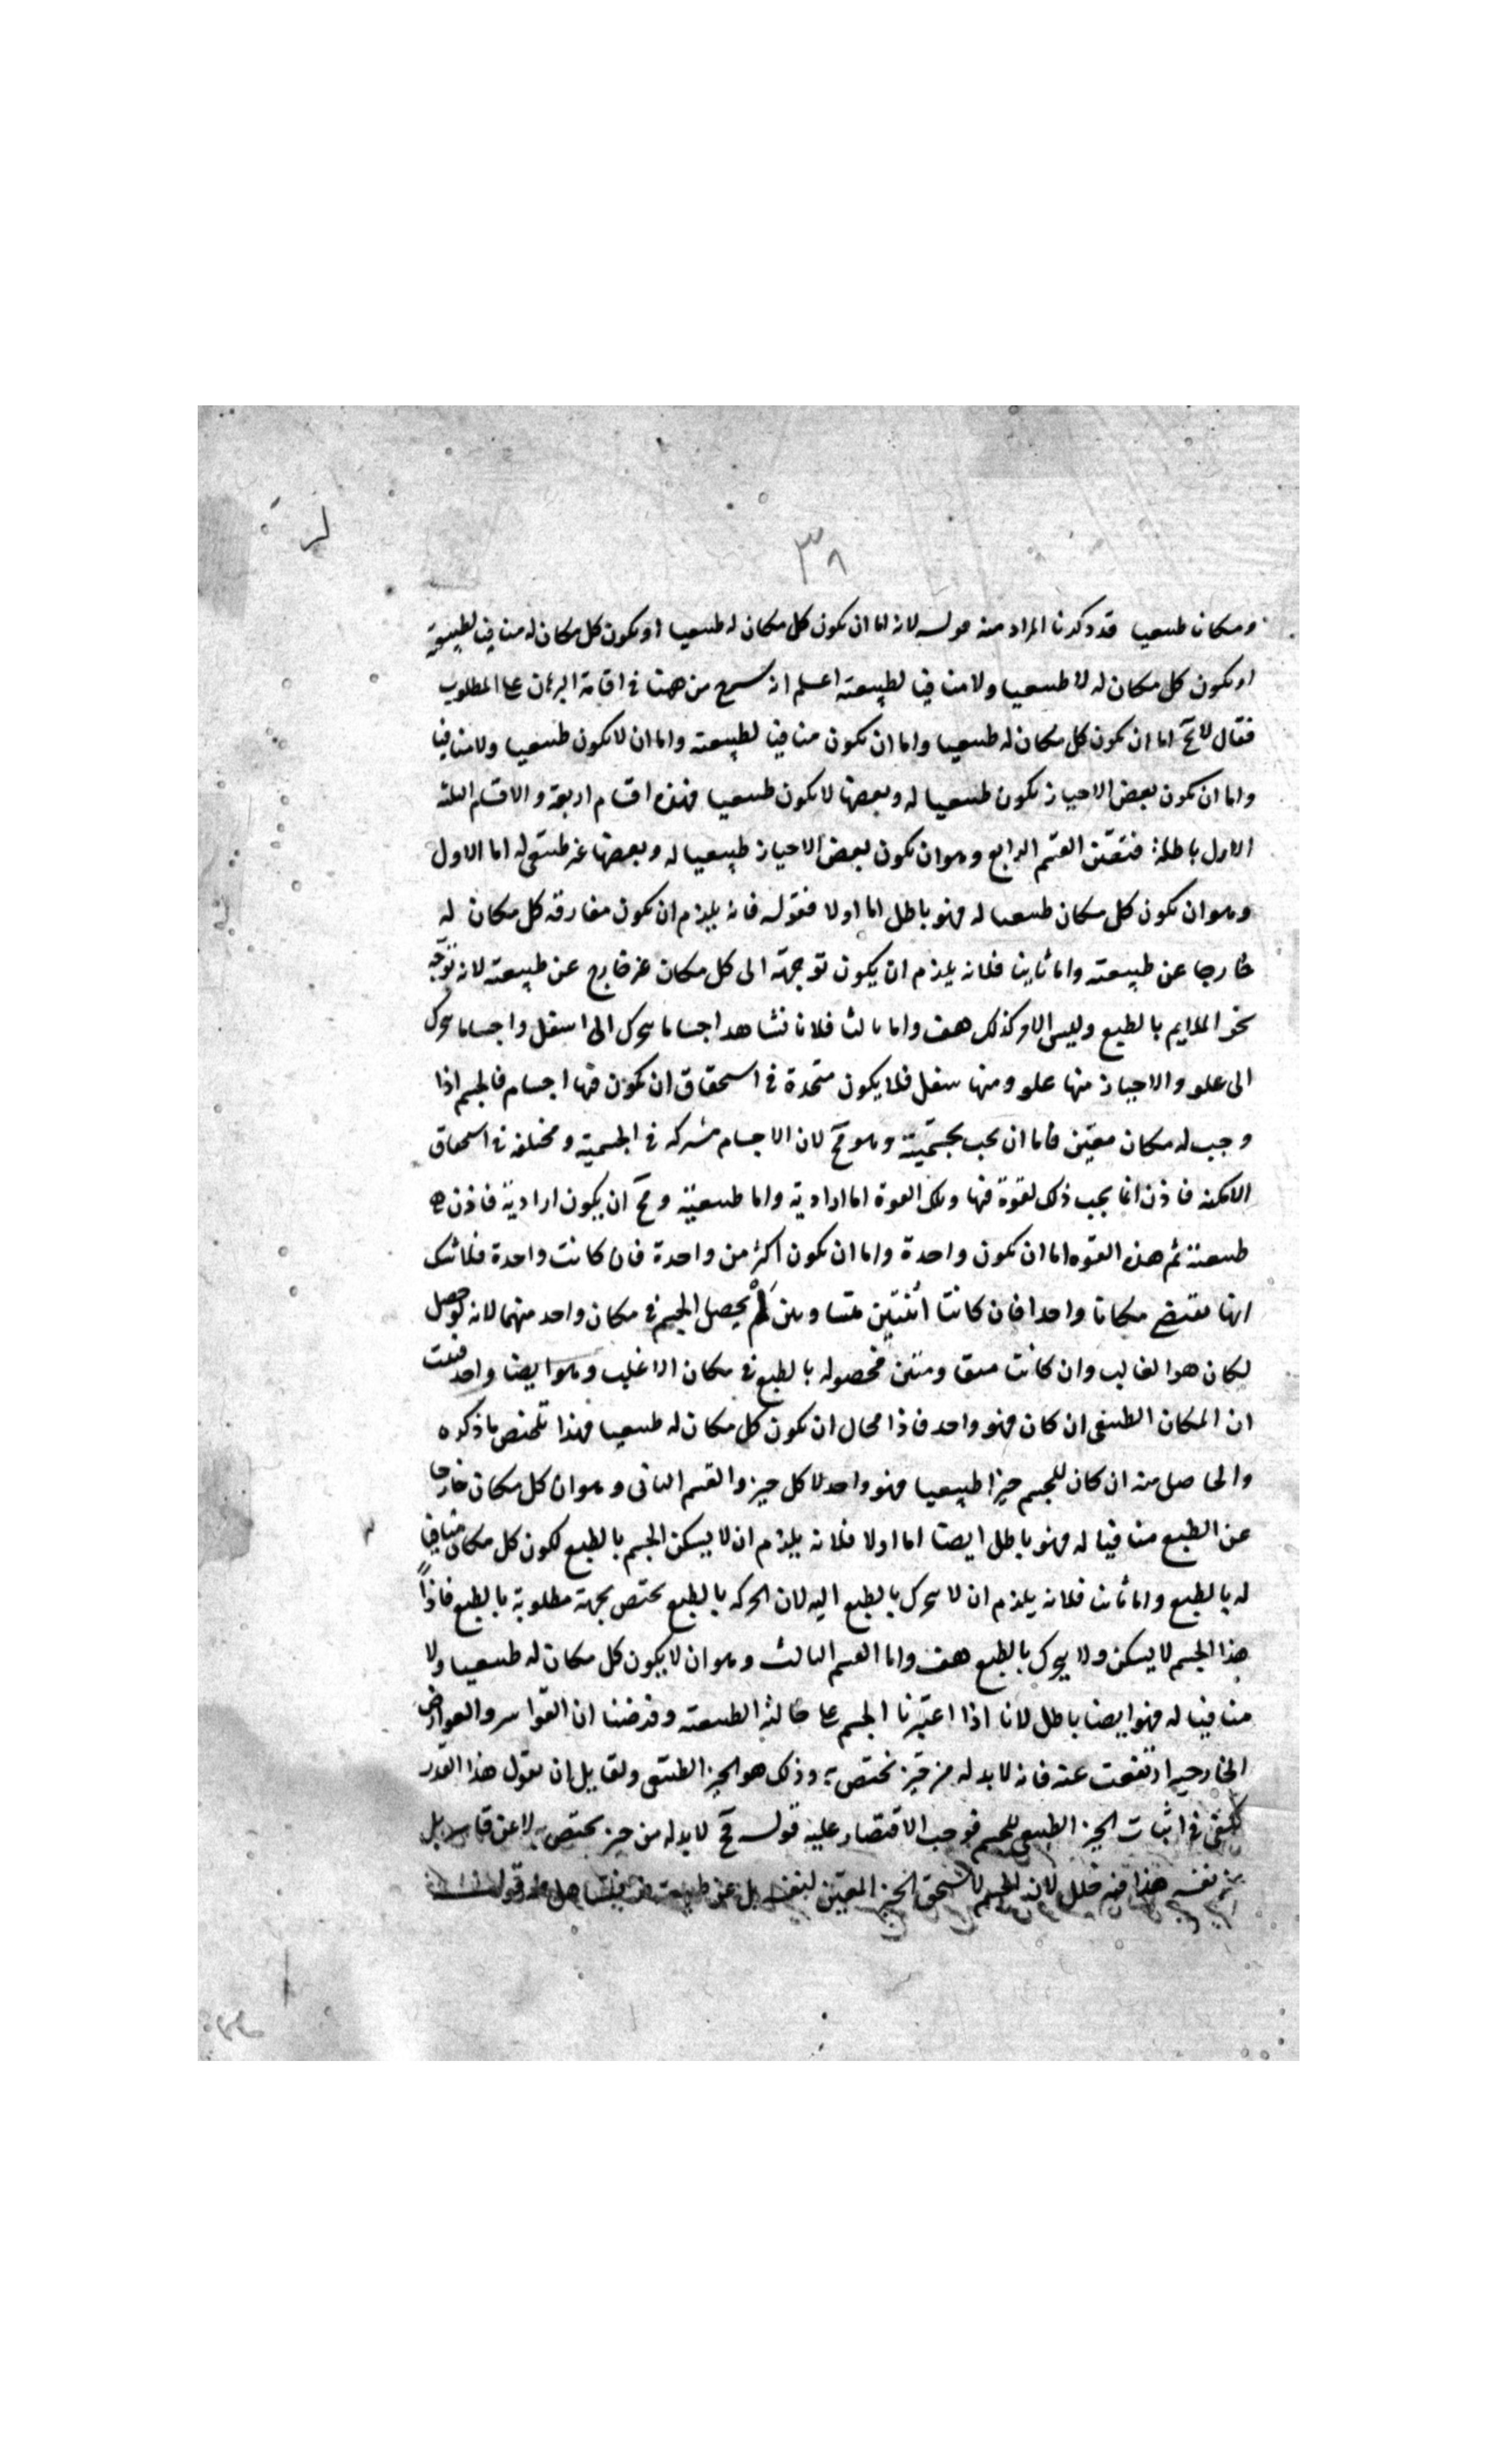 ٣٨
ومكانا طبيعيا قد ذكرنا المراد منه قوله لانه اما ان يكون كل مكان له طبيعيا او يكون كل مكان له منافيا لطبيعته
او يكون كل مكان له لا طبيعيا ولا منافيا لطبيعته اعلم انه شرع من ههنا فى اقامة البرهان على المطلوب
فقال لا يخ اما ان يكون كل مكان له طبيعيا واما ان يكون منافيا لطبيعته واما ان لا يكون طبيعيا ولا منافيا
واما ان يكون بعض الاحياز يكون طبيعيا له وبعضها لا يكون طبيعيا فهذه اقسام اربعة والاقسام الثلثة
الاول باطلة فتعين القسم الرابع وهو ان يكون بعض الاحياز طبيعيا له وبعضها غير طبيعى له اما الاول
وهو ان يكون كل مكان طبيعيا له فهو باطل اما اولا فقوله فانه يلزم ان يكون مفارقة كل مكان له
خارجا عن طبيعته واما ثانيا فلانه يلزم ان يكون توجهه الى كل مكان غير خارج عن طبيعته لانه توجه
نحو الملايم بالطبع وليس الامر كذلك هف واما ثالثا فلانا نشاهد اجساما تتحرك الى اسفل واجساما تتحرك
الى علو والاحياز منها علو ومنها سفل فلا يكون متحدة فى استحقاق ان يكون فيها اجسام فالجسم اذا
وجب له مكان معين فاما ان يجب بجسميته وهو مح لان الاجسام مشتركة فى الجسمية ومختلفة فى استحقاق
الامكنة فاذن انما يجب ذلك لقوة فيها وتلك القوة اما ارادية واما طبيعية ومح ان يكون ارادية فاذن هى
طبيعية ثم هذه القوة اما ان يكون واحدة واما ان يكون اكثر من واحدة فان كانت واحدة فلا شك
انها تقتضى مكانا واحدا فان كانتا اثنتين متساويتين لم يحصل الجسم فى مكان واحد منهما لانه لو حصل
لكان هو الغالب وان كانت متفاوتتين فحصوله بالطبع فى مكان الاغلب وهو ايضا واحد فثبت
ان المكان الطبيعى ان كان فهو واحد فاذا محال ان يكون كل مكان له طبيعيا فهذا تلخيص ما ذكره
والحاصل منه ان كان للجسم حيزا طبيعيا فهو واحد لا كل حيز والقسم الثانى وهو ان كل مكان خارجا
عن الطبع منافيا له فهو باطل ايضا اما اولا فلانه يلزم ان لا يسكن الجسم بالطبع لكون كل مكان منافيا
له بالطبع واما ثانيا فلانه يلزم ان لا يتحرك بالطبع اليه لان الحركة بالطبع تختص بجهة مطلوبة بالطبع فاذاً
هذا الجسم لا يسكن ولا يتحرك بالطبع هف واما القسم الثالث وهو ان لا يكون كل مكان له طبيعيا ولا
منافيا له فهو ايضا باطل لانا اذا اعتبرنا الجسم على حالته الطبيعية وفرضنا ان القواسر والعوارض
الخارجية ارتفعت عنه فانه لا بد له من حيز تختص به وذلك هو الحيز الطبيعى ولقايل ان يقول هذا القدر
يكفى فى اثبات الحيز الطبيعى للجسم فوجب الاقتصار عليه قوله مح لا بد له من حيز يختص به لا عن قاسر بل
عن نفسه هذا فيه خلل لان الجسم لا يستحق الحيز المعين لنفسه بل عن طبيعته قوله